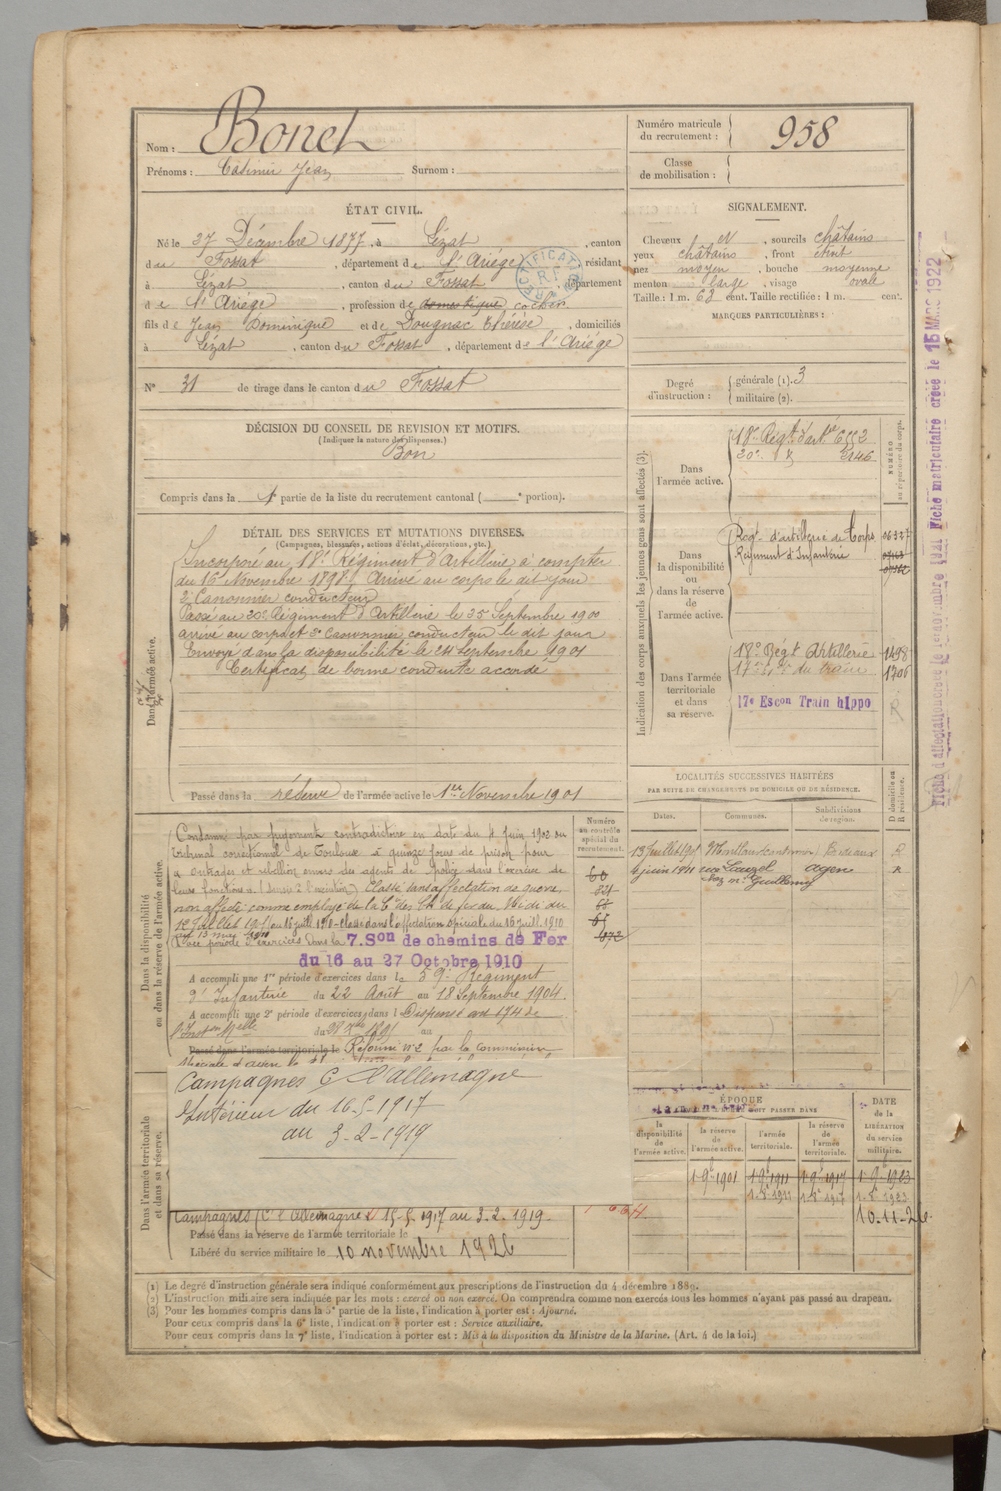 Nom : Bonet
Prénoms : Casimir Jean Surnom :
Numéro matricule du recrutement : 958
Classe de mobilisation :
ÉTAT CIVIL.
Né le 27 Décembre 1877, à Lézat, canton
du Fossat, département de l'Ariège, résidant
à Lézat, canton du Fossat, département
de l'Ariège, profession de domestique cocher
fils de Jean Dominique et de Dougnac Thérèse, domiciliés
à Lézat, canton du Fossat, département de l'Ariège
RECTIFICATION R.F.
N° 31 de tirage dans le canton du Fossat
SIGNALEMENT.
Cheveux N, sourcils châtains
yeux châtains, front étroit
nez moyen, bouche moyenne
menton large, visage ovale
Taille : 1 m. 68 cent. Taille rectifiée : 1 m. cent.
MARQUES PARTICULIÈRES :
Degré d'instruction : générale (1). 3
militaire (2).
DÉCISION DU CONSEIL DE REVISION ET MOTIFS.
(Indiquer la nature des dispenses.)
Bon
Compris dans la 1e partie de la liste du recrutement cantonal ( e portion).
DÉTAIL DES SERVICES ET MUTATIONS DIVERSES.
(Campagnes, blessures, actions d'éclat, décorations, etc.)
Dans l'armée active.
Incorporé au 18e Régiment d'Artillerie à compter
du 16 Novembre 1898. Arrivé au corps le dit jour
2e Canonnier conducteur
Passé au 20e Régiment d'Artillerie le 25 Septembre 1900
arrivé au corps et 2e Canonnier conducteur le dit jour
Envoyé dans la disponibilité le 21 Septembre 1901
Certificat de bonne conduite accordé
Passé dans la réserve de l'armée active le 1er Novembre 1901
Indication des corps auxquels les jeunes gens sont affectés (3).
NUMÉRO au répertoire du corps.
Dans l'armée active.
18e Régt d'Arte 6552
20e 2146
Dans la disponibilité ou dans la réserve de l'armée active.
Régt d'artillerie de Corps
Régiment d'Infanterie
Dans l'armée territoriale et dans sa réserve.
18e Régt Artillerie 1498
17e du train 1706
17e Escon Train hippo
Fiche matriculaire créée le 15 MARS 1922
LOCALITÉS SUCCESSIVES HABITÉES
PAR SUITE DE CHANGEMENTS DE DOMICILE OU DE RÉSIDENCE.
Dates. Communes. Subdivisions de région. D domicile ou R résidence.
Bordeaux R
4 juin 1911 rue Lauzel agen R
chez Mr Guillemy
Dans la disponibilité ou dans la réserve de l'armée active.
Numéro au contrôle spécial du recrutement.
Condamné par jugement contradictoire en date du 4 Juin 1902 du
tribunal correctionnel de Toulouse à quinze jours de prison pour
outrages et rébellion envers des agents de police dans l'exercice de
leurs fonctions. (Sursis à l'exécution). Classé dans affectation de guerre,
non affecté comme employé de la Cie des Ch. de fer du Midi du
une période d'exercices dans la 7. Son de chemins de Fer
du 16 au 27 Octobre 1910
A accompli une 1re période d'exercices dans le 59e Régiment
d'Infanterie du 22 Août au 18 Septembre 1904.
A accompli une 2e période d'exercices dans l Dispensé art 174 de
l'Inst on Mlle du 28 Xbre 1891 au
Passé dans l'armée territoriale le Réformé n° 2 par la commission
spéciale d'agen le
Dans l'armée territoriale et dans sa réserve.
Campagnes C. l'allemagne
Intérieur du 16-5-1917
au 3-2-1919
Campagnes C. l'Allemagne 15-5-1917 au 3.2.1919.
Passé dans la réserve de l'armée territoriale le
Libéré du service militaire le 10 novembre 1926
ÉPOQUE
DOIT PASSER DANS
la disponibilité de l'armée active. la réserve de l'armée active. l'armée territoriale. la réserve de l'armée territoriale. DATE de la LIBÉRATION du service militaire.
1.9bre 1901 1.9bre 1911 1.9bre 1917 1.9bre 1923
10-11-26.
(1) Le degré d'instruction générale sera indiqué conformément aux prescriptions de l'instruction du 4 décembre 1889.
(2) L'instruction militaire sera indiquée par les mots : exercé ou non exercé. On comprendra comme non exercés tous les hommes n'ayant pas passé au drapeau.
(3) Pour les hommes compris dans la 5e partie de la liste, l'indication à porter est : Ajourné.
Pour ceux compris dans la 6e liste, l'indication à porter est : Service auxiliaire.
Pour ceux compris dans la 7e liste, l'indication à porter est : Mis à la disposition du Ministre de la Marine. (Art. 4 de la loi.)